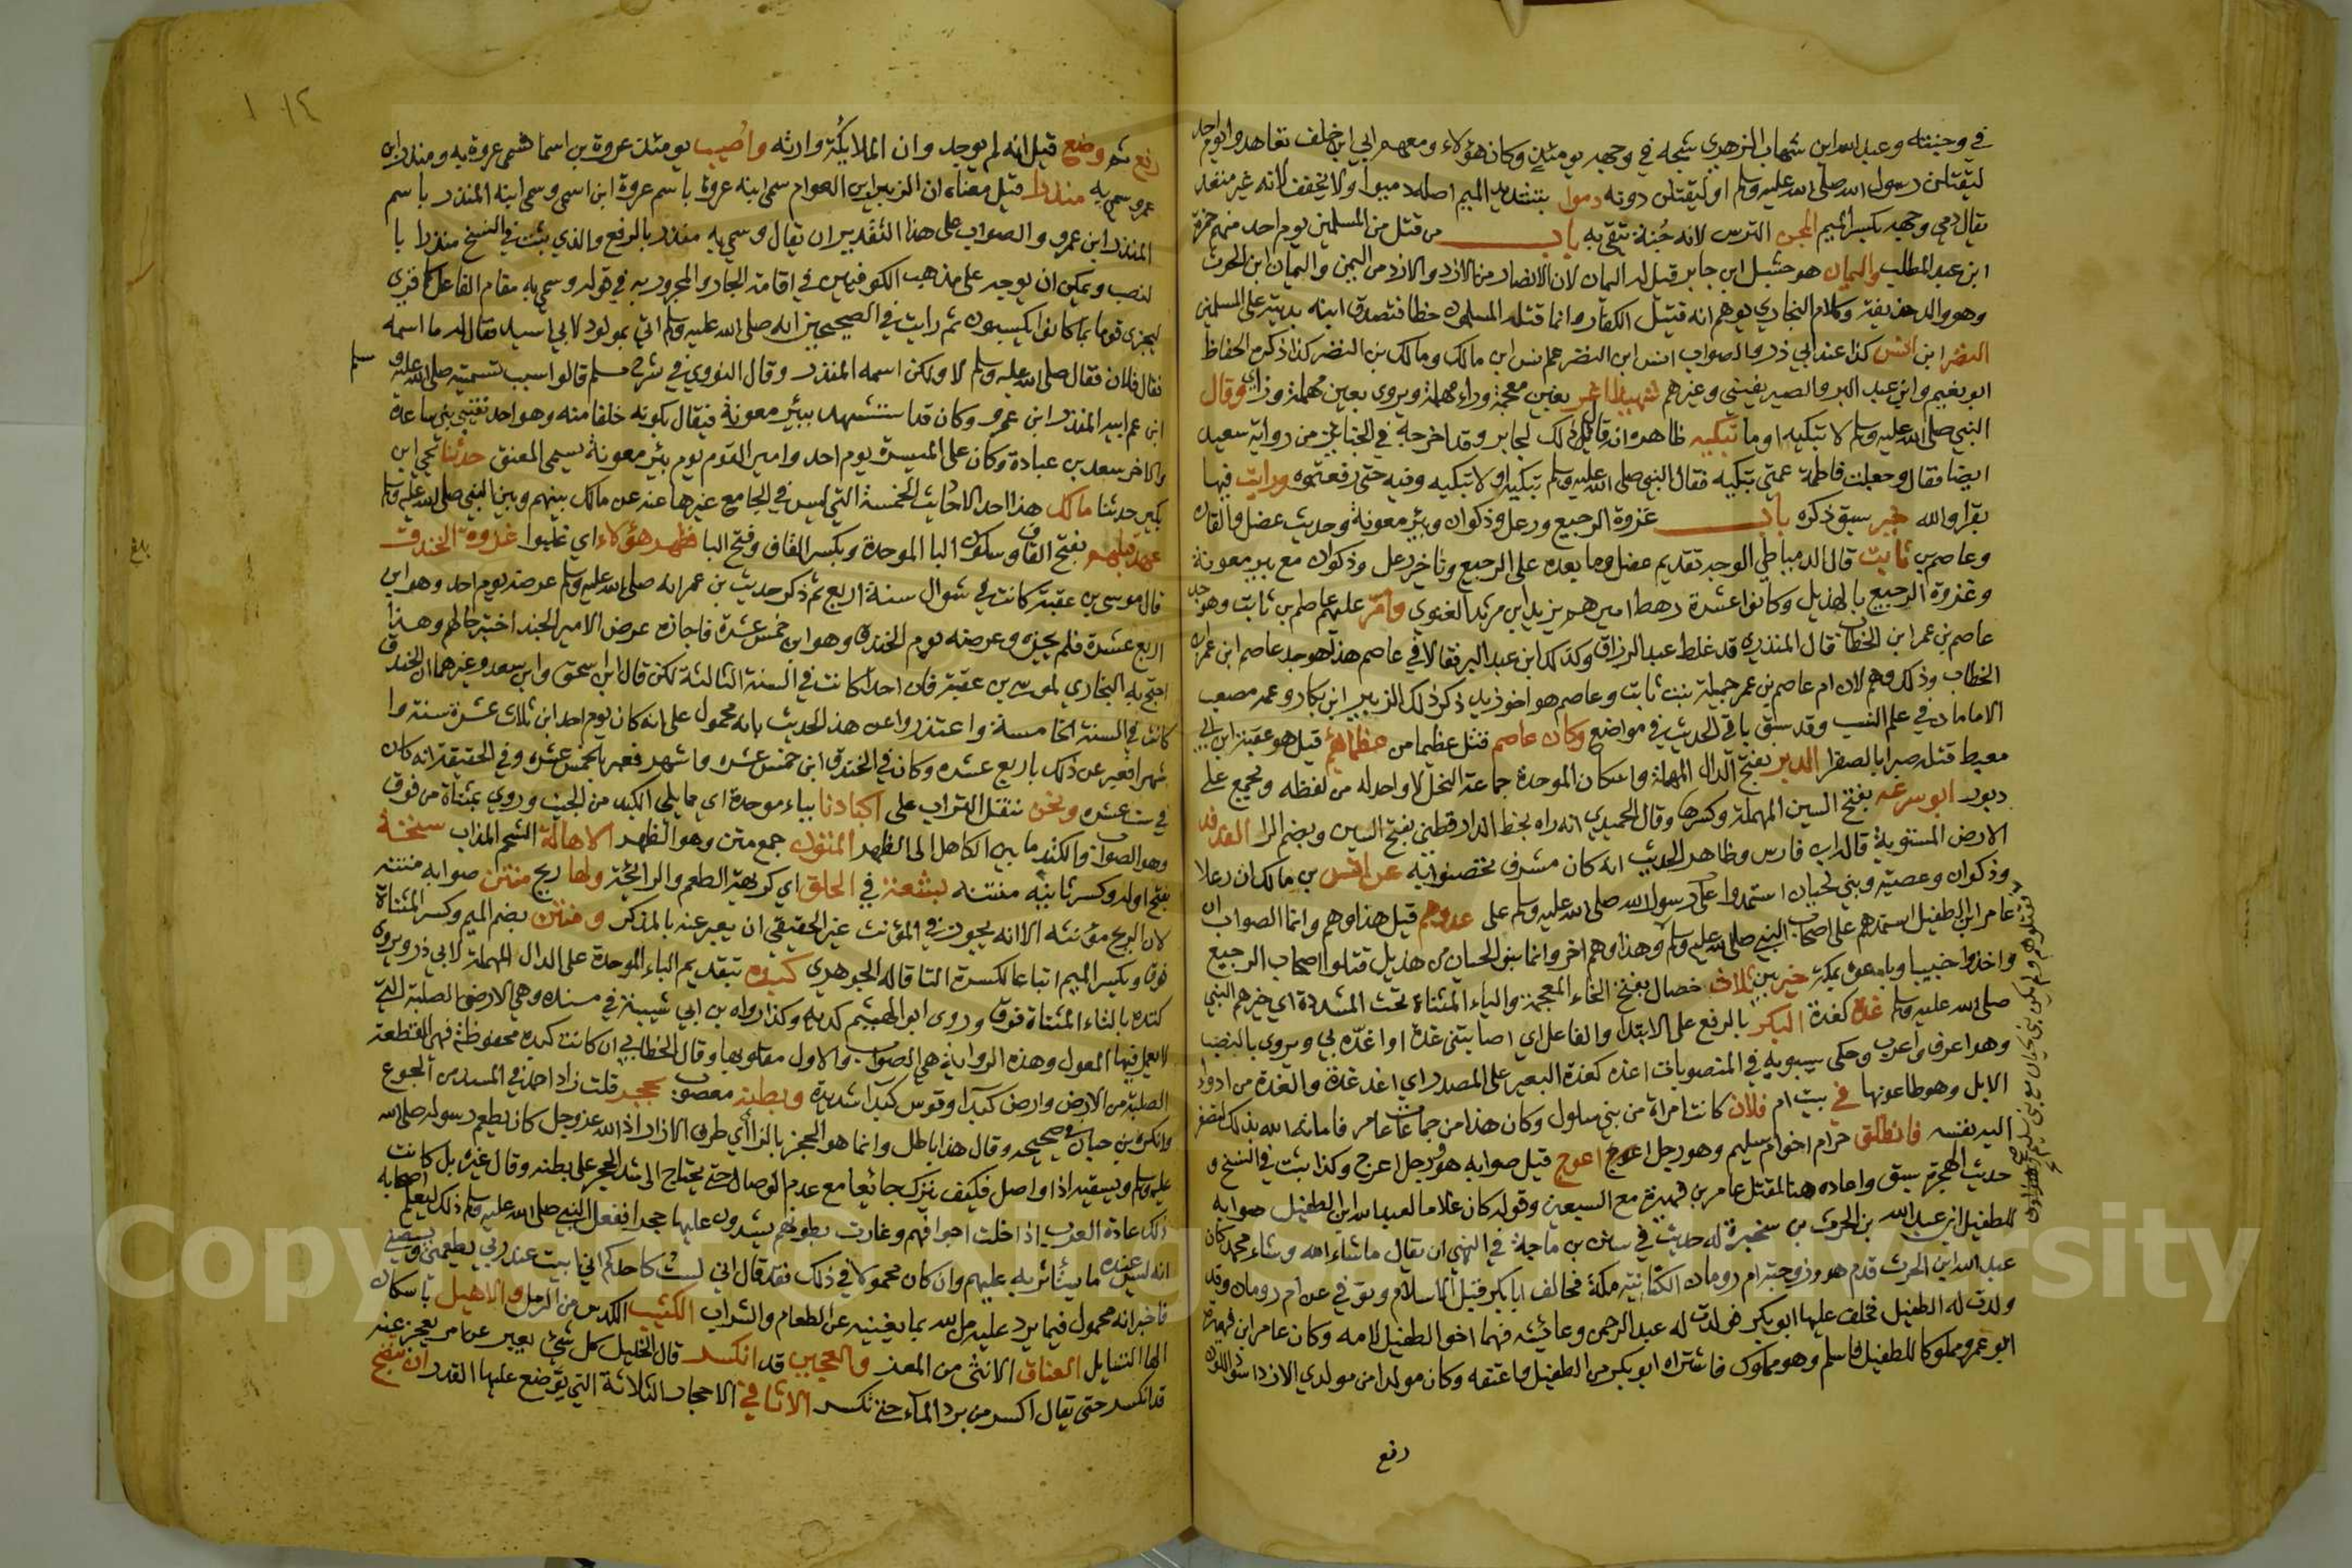 في وجنته وعبد الله ابن شهاب الزهري شجه في وجهه يومئذ وكان هؤلاء ومعهم ابي ابن خلف تعاهدوا يوم احد
ليقتلن رسول الله صلى الله عليه وسلم او ليقتلن دونه دمول بتشديد الميم اصله دميوا ولا يخفف لانه غير متعد
يقال دمي وجهه بكسر الميم المجن الترس لانه جنة تتقي به باب من قتل من المسلمين يوم احد منهم حمزة
ابن عبد المطلب واليمان هو حسيل ابن جابر قيل له اليمان لان الانصار من الازد والازد من اليمن واليمان ابن الحرث
وهو والد حذيفة وكلام البخاري يوهم انه قتيل الكفار وانما قتله المسلمون خطا فتصدق ابنه بديته على المسلمين
النضر ابن انس كذا عند ابي ذر والصواب انس ابن النضر عم انس ابن مالك ومالك بن النضر كذا ذكره الحفاظ
ابو نعيم وابن عبد البر والصيريفيني وغيرهم اغر بغين معجمة وراء مهملة ويروى بعين مهملة وزاي وقال
النبي صلى الله عليه وسلم لا تبكيه او ما تبكيه ظاهره انه قال ذلك لجابر وقد اخرجه في الجنايز من رواية سعيد
ايضا فقال وجعلت فاطمة عمتي تبكيه فقال النبي صلى الله عليه وسلم تبكيه او لا تبكيه وفيه حتى رفعتموه ورايت فيها
بقرا والله خير سبق ذكره باب غزوة الرجيع ورعل وذكوان وبئر معونة وحديث عضل والقارة
وعاصم بن ثابت قال الدمياطي الوجه تقديم عضل وما بعده على الرجيع وتاخير رعل وذكوان مع بير معونة
وغزوة الرجيع بالهذيل وكانوا عشرة رهط اميرهم يزيد ابن مرثد الغنوي وامر عليهم عاصم بن ثابت وهو جد
عاصم بن عمر ابن الخطاب قال المنذري قد غلط عبد الرزاق وكذلك ابن عبد البر فقالا في عاصم هذا هو جد عاصم ابن عمر ابن
الخطاب وذلك وهم لان ام عاصم بن عمر جميلة بنت ثابت وعاصم هو اخو ذيد ذكر ذلك الزبير ابن بكار وعمه مصعب
الامامان في علم النسب وقد سبق باقي الحديث في مواضع وكان عاصم قتل عظيما من عظمائهم قيل هو عقبة ابن ابي
معيط قتله صبرا بالصفرا الدبر بفتح الدال المهملة واسكان الموحدة جماعة النحل لا واحد له من لفظه ويجمع على
دبور ابو سرعة بفتح السين المهملة وكسرها وقال الحميدي انه راه بخط الدارقطني بفتح السين وبضم الرا الفدفد
الارض المستوية قاله ابن فارس وظاهر الحديث انه كان مشرف تحصنوا فيه عن انس بن مالك ان رعلا
وذكوان وعصية وبني لحيان استمدوا على رسول الله صلى الله عليه وسلم على عدوهم قيل هذا وهم وانما الصواب ان
عامر ابن الطفيل استمدهم على اصحاب النبي صلى الله عليه وسلم وهذا وهم اخر وانما بنو لحيان من هذيل قتلوا اصحاب الرجيع
واخذوا خبيبا وباعوه بمكة خير بين ثلاث خصال بفتح الخاء المعجمة والياء المثناة تحت المشددة اي خيرهم النبي
صلى الله عليه وسلم غدة كغدة البكر بالرفع على الابتدا والفاعل اي اصابتني غدة او اغدة بي ويروى بالنصب
وهو اعرف واعرب وحكى سيبويه في المنصوبات اغده كغدة البعير على المصدر اي اغد غدة والغدة من ادوا
الابل وهو طاعونها في بيت ام فلان كانت امراة من بني سلول وكان هذا من حماقات عامر فاماته الله بذلك
اليه نفسه فانطلق حرام اخو ام سليم وهو رجل اعوج اعوج قيل صوابه هو ورجل اعرج وكذا يثبت في النسخ و
حديث الهجرة سبق واعاده هنا لمقتل عامر بن فهيرة مع السبعين وقوله كان غلاما لعبد الله ابن الطفيل صوابه
للطفيل ابن عبد الله بن الحرث بن سخبرة له حديث في سنن بن ماجة في النهي ان يقال ما شاء الله وشاء محمد كان
عبد الله ابن الحرث قدم هو وزوجته ام رومان الكنانية مكة فحالف ابا بكر قبل الاسلام وتوفي عن ام رومان وقد
ولدت له الطفيل فخلف عليها ابو بكر فولدت له عبد الرحمن وعائشة فهما اخوا الطفيل لامه وكان عامر ابن فهيرة
ابو عمرو مملوكا للطفيل فاسلم وهو مملوك فاشتراه ابو بكر من الطفيل واعتقه وكان مولدا من مولدي الازد اسود اللون
رفع
رفع ثم وضع قيل انه لم يوجد وان الملائكة وارته واصيب يومئذ عروة بن اسما فسمى عروة به ومنذر ابن
عمرو سمي به منذرا قيل معناه ان الزبير ابن العوام سمى ابنه عروة باسم عروة ابن اسمى وسمى ابنه المنذر باسم
المنذر ابن عمرو والصواب على هذا التقدير ان يقال وسمي به منذر بالرفع والذي يثبت في النسخ منذرا با
لنصب ويمكن ان يوجه على مذهب الكوفيين في اقامة الجار والمجرور به في قوله وسمي به مقام الفاعل كما قري
ليجزى قوما بما كانوا يكسبون ثم رايت في الصحيحين انه صلى الله عليه وسلم اتي بمولود لابي اسيد فقال له ما اسمه
فقال فلان فقال صلى الله عليه وسلم لا ولكن اسمه المنذر وقال النووي في شرح مسلم قالوا سبب تسميته صلى الله عليه وسلم
ابن عم ابيه المنذر ابن عمرو وكان قد استشهد ببئر معونة فيقال بكونه خلفا منه وهو احد نقيبي بني ساعدة
والاخر سعد بن عبادة وكان على الميسرة يوم احد وامير القوم يوم بئر معونة يسمى المعنق حدثنا يحيى ابن
بكير حدثنا مالك هذا احد الاحاديث الخمسة التي ليس في الجامع غيرها عنه عن مالك بينهم وبين النبي صلى الله عليه وسلم
عهد قبلهم بفتح القاف وسكون البا الموحدة وبكسر القاف وفتح البا فظهر هؤلاء اي غلبوا غزوة الخندق
قال موسى بن عقبة كانت في شوال سنة اربع ثم ذكر حديث بن عمر انه صلى الله عليه وسلم عرضه يوم احد وهو ابن
اربع عشرة فلم يجزه وعرضه يوم الخندق وهو ابن خمس عشرة فاجازه عرض الامير الجند اختبر حالهم وهذا
احتج به البخاري لموسى بن عقبة فان احدا كانت في السنة الثالثة لكن قال ابن اسحق وابن سعد وغيرهما ان الخندق
كانت في السنة الخامسة واعتذروا عن هذا الحديث بانه محمول على انه كان يوم احد ابن ثلاث عشرة سنة وا
شهرا فعبر عن ذلك باربع عشره وكان في الخندق ابن خمس عشره وما شهد فعبر بالخمس عشره وفي الحقيقة انه كان
في ست عشره ونحن ننقل التراب على اكبادنا بباء موحدة اي ما يلي الكبد من الجنب وروي بمثناة من فوق
وهو الصواب والكتد ما بين الكاهل الى الظهر المتون جمع متن وهو الظهر الاهالة الشحم المذاب سنخة
بفتح اوله وكسر ثانيه منتنه بشعة في الحلق اي كريهة الطعم والرائحة ولها ريح منتن صوابه منتنه
لان الريح مؤنثه الا انه يجوز في المؤنث غير الحقيقي ان يعبر عنه بالمذكر ومنتن بضم الميم وكسر المثناة
فوق وبكسر الميم اتباعا لكسرة التا قاله الجوهري كبدة بتقديم الباء الموحدة على الدال المهملة لابي ذر ويروى
كتدة بالتاء المثناة فوق وروى ابو الهيثم كديه وكذا رواه بن ابي شيبة في مسنده وهي الارض الصلبة التي
لا يعمل فيها المعول وهذه الرواية هي الصواب والاول مقلوبها وقال الخطابي ان كانت كبدة محفوظة فهي القطعة
الصلبة من الارض وارض كبدآ وقوس كبدآ شديدة وبطنه معصوب بحجر قلت زاد احمد في المسند من الجوع
وانكره بن حبان في صحيحه وقال هذا باطل وانما هو الحجز بالزاي طرف الازار اذ الله عز وجل كان يطعم رسوله صلى الله
عليه وسلم ويسقيه اذا واصل فكيف يترك جائعا مع عدم الوصال حتى يحتاج الى شد الحجر على بطنه وقال غيره بل كانت
ذلك عادة العرب اذا خلت اجوافهم وغارت بطونهم يشدون عليها حجرا ففعل النبي صلى الله عليه وسلم ذلك ليعلم اصحابه
انه ليس عنده ما يستأثر به عليهم وان كان محمولا في ذلك فقد قال اني لست كاحدكم اني ابيت عند ربي يطعمني ويسقيني
فاخبر انه محمول فيما يرد عليه من الله بما يغنيه عن الطعام والشراب الكثيب الكدس من الرمل والاهيل باسكان
الها السايل العناق الانثى من المعز والعجين قد انكسر قال الخليل كل شئ يعبر عن امر يعجز عنه
قد انكسر حتى يقال اكسر من برد الماء حتى تكسر الاثافي الاحجار الثلاثة التي توضع عليها القدر ان تنضج
بلغ
Copyright © King Saud University